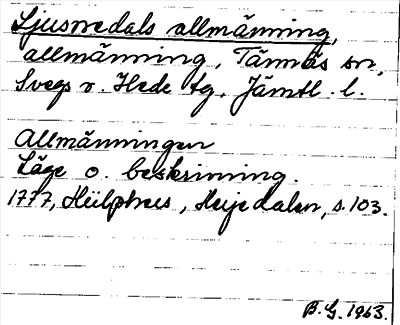 Ljusnedals allmänning,
allmänning, Tännäs sn,
Svegs o. Hede tg, Jämtl. l.
Allmänningen
Läge o. beskrivning.
1777, Hülphers, Herjedalen, s. 103.
B.G. 1963.